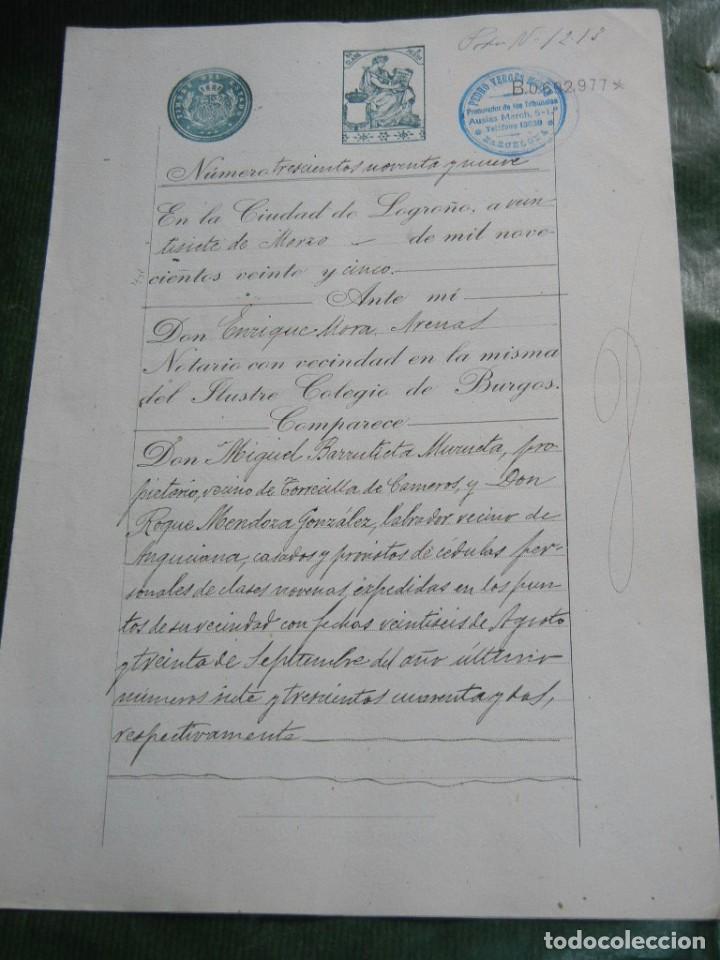 Nº 1213
B.0,692,977*
PEDRO VERGÉS
Procurador de los Tribunales
Ausias March, 5-1.º
Teléfono
BARCELONA
Número trescientos noventa y nueve
En la Ciudad de Logroño, a vein-
tisiete de Marzo — de mil nove-
cientos veinte y cinco.
Ante mí
Don Enrique Mora Arenas
Notario con vecindad en la misma
del Ilustre Colegio de Burgos.
Comparece
Don Miguel Barrutieta Murueta, pro-
pietario, vecino de Torrecilla de Cameros, y Don
Roque Mendoza González, labrador vecino de
Anguciana, casados y provistos de cédulas per-
sonales de clases novenas, expedidas en los pun-
tos de su vecindad con fechas veintiseis de Agosto
y treinta de Septiembre del año último
números siete y trescientos cuarenta y dos,
respectivamente
todocoleccion
todocoleccion.net